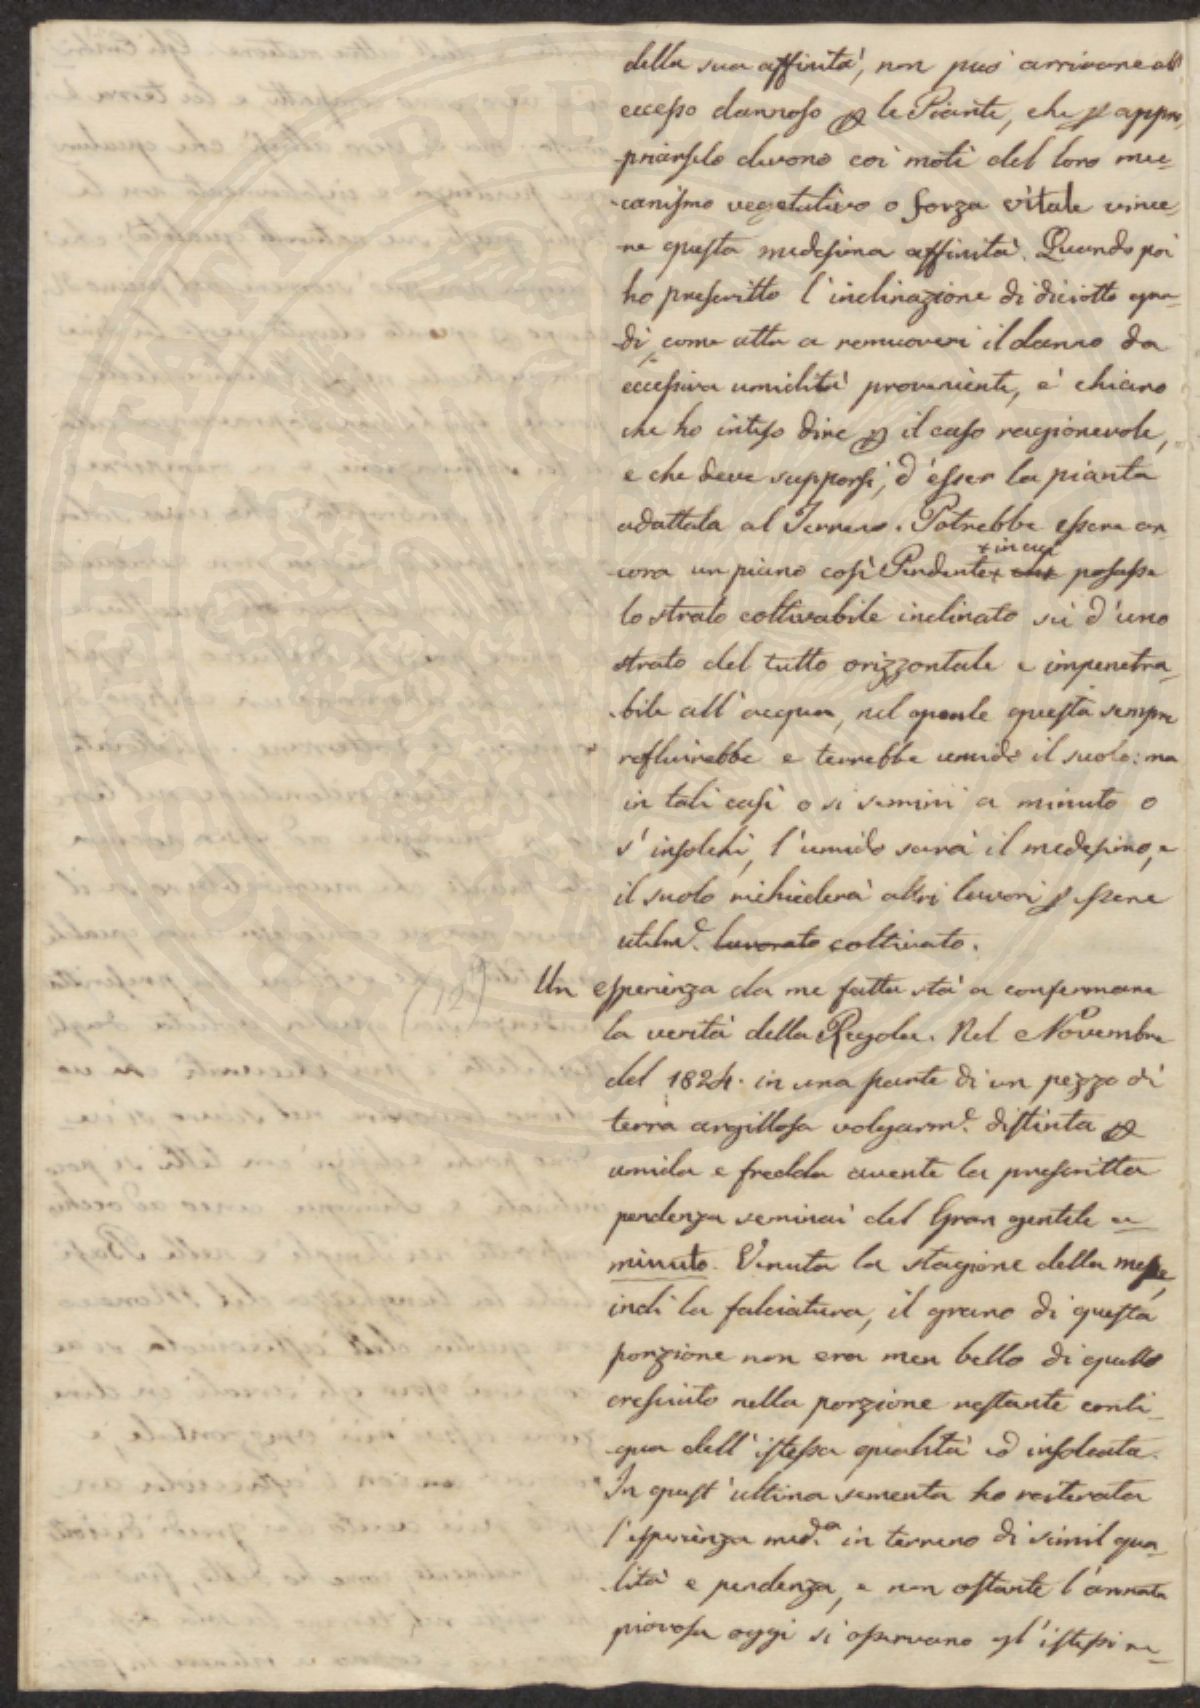 della sua affinità, non può arrivare all'
eccesso dannoso p le Piante, che p appro,
priarselo devono coi moti del loro mec=
canismo vegetativo o forza vitale vince=
re questa medesima affinità. Quando poi
ho prescritto l'inclinazione di diciotto gra=
di, come atta a remuoveri il danno da
eccessiva umidità proveniente, è chiaro
che ho inteso dire p il caso ragionevole,
e che deve supporsi, d'esser la pianta
adattata al Terreno. Potrebbe essere an
cora un piano così Pendente + che + in cui posasse
lo strato coltivabile inclinato sù d'uno
strato del tutto orizzontale e impenetra=
bile all'acqua, nel quale questa sempre
refluirebbe e terrebbe umido il suolo: ma
in tali casi o si semini a minuto o
s'insolchi, l'umido sarà il medesimo, e
il suolo richiederà altri lavori p essere
utilm.e lavorato coltivato.
Un esperienza da me fatta stà a confermare
la verità della Regola. Nel Novembre
del 1824. in una parte di un pezzo di
terra argillosa volgarm.e distinta p
umida e fredda avente la prescritta
pendenza seminai del Gran gentile a
minuto. Venuta la stagione della messe,
indi la falciatura, il grano di questa
porzione non era men bello di quello
cresciuto nella porzione restante conti=
gua dell'istessa qualità ed insolcata.
In quest'ultima sementa ho reiterata
l'esperienza med.a in terreno di simil qua=
lità e pendenza, e non ostante l'annata
piovosa oggi si osservano gl'istessi re=
(12)